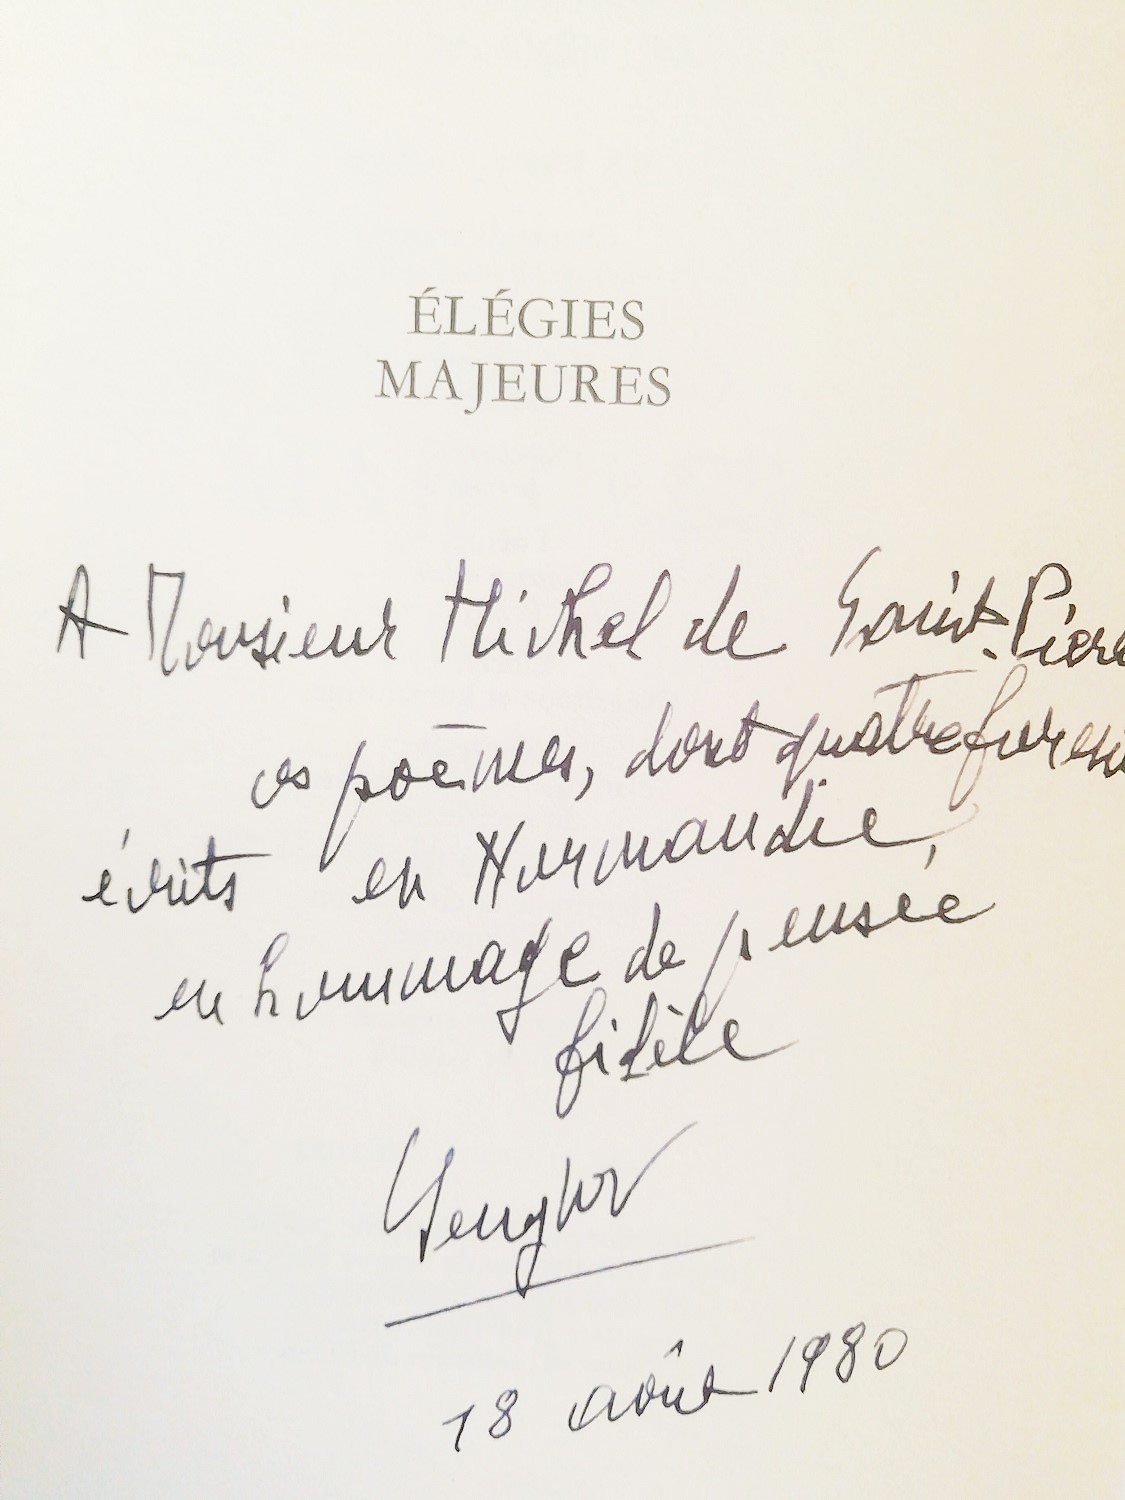 ÉLÉGIES
MAJEURES
A Monsieur Michel de Saint-Pierre
ces poèmes, dont quatre furent
écrits en Normandie,
en hommage de pensée
fidèle
Senghor
18 août 1980